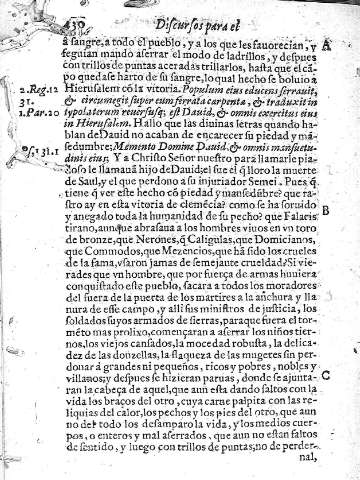 430 Discursos para el
à sangre, a todo el pueblo, y a los que les fauorecian, y A
seguian mandò aserrar el modo de ladrillos, y despues
con trillos de puntas aceradas trillarlos, hasta que el cã
po quedase harto de su sangre, lo qual hecho se boluio à
2. Reg. 12 Hierusalem cõ la vitoria. Populum eius educens serrauit,
31. & circumegit super eum ferrata carpenta, & traduxit in
1. Par. 20 typo laterum reuersusq; est Dauid, & omnis exercitus eius
in Hierusalem. Hallo que las diuinas letras quando ha-
blan de Dauid no acaban de encarecer su piedad y mã
ps. 131. 1 sedumbre; Memento Domine Dauid, & omnis mansuetu-
dinis eius. Y a Christo Señor nuestro para llamarle pia-
doso le llamauã hijo de Dauid; el fue el q̃ lloro la muerte
de Saul, y el que perdono a su injuriador Semei. Pues q̃
tiene q̃ ver este hecho cõ piedad y mansedũbre? que ra-
stro ay en esta vitoria de clemẽcia? como se ha soruido
y anegado toda la humanidad de su pecho? que Falaris B
tirano, aunque abrasaua a los hombres viuos en vn toro
de bronze, que Nerones, q̃ Caligulas, que Domicianos,
que Commodos, que Mezencios, que hã sido los crueles
de la fama, vsaron jamas de semejante crueldad? Si vie-
rades que vn hombre, que por fuerça de armas huuiera
conquistado este pueblo, sacara a todos los moradores
del fuera de la puerta de los martires a la anchura y lla
nura de esse campo, y alli sus ministros de justicia, los
soldados suyos armados de sierras, para que fuera el tor-
mẽto mas prolixo, començaran a aserrar los niños tier-
nos, los viejos cansados, la mocedad robusta, la delica-
dez de las donzellas, la flaqueza de las mugeres sin per-
donar à grandes ni pequeños, ricos y pobres, nobles y
villanos; y despues se hizieran paruas, donde se ajunta- C
ran la cabeça de aquel, que aun esta dando saltos con la
vida los braços del otro, cuya carne palpita con las re-
liquias del calor, los pechos y los pies del otro, que aun
no del todo los desamparo la vida, y los medios cuer-
pos, o enteros y mal aserrados, que aun no estan faltos
de sentido, y luego con trillos de puntas, no de perder-
nal,